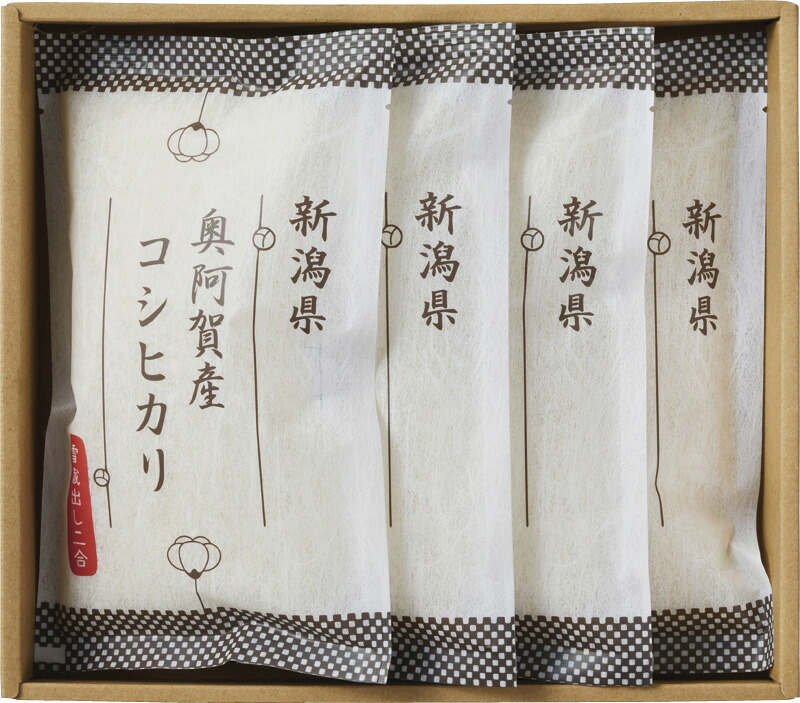 新潟県
奥阿賀産
コシヒカリ
雪蔵出し二合
新潟県
新潟県
新潟県